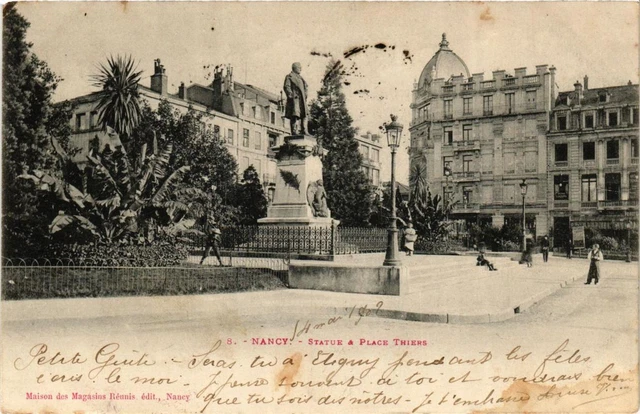 8. - NANCY. - STATUE & PLACE THIERS
14 mai 1902
Petite Guite - Seras-tu à Etigny pendant les fêtes
écris le moi - Je pense souvent à toi et voudrais bien
que tu sois des nôtres - Je t'embrasse
Maison des Magasins Réunis, édit., Nancy